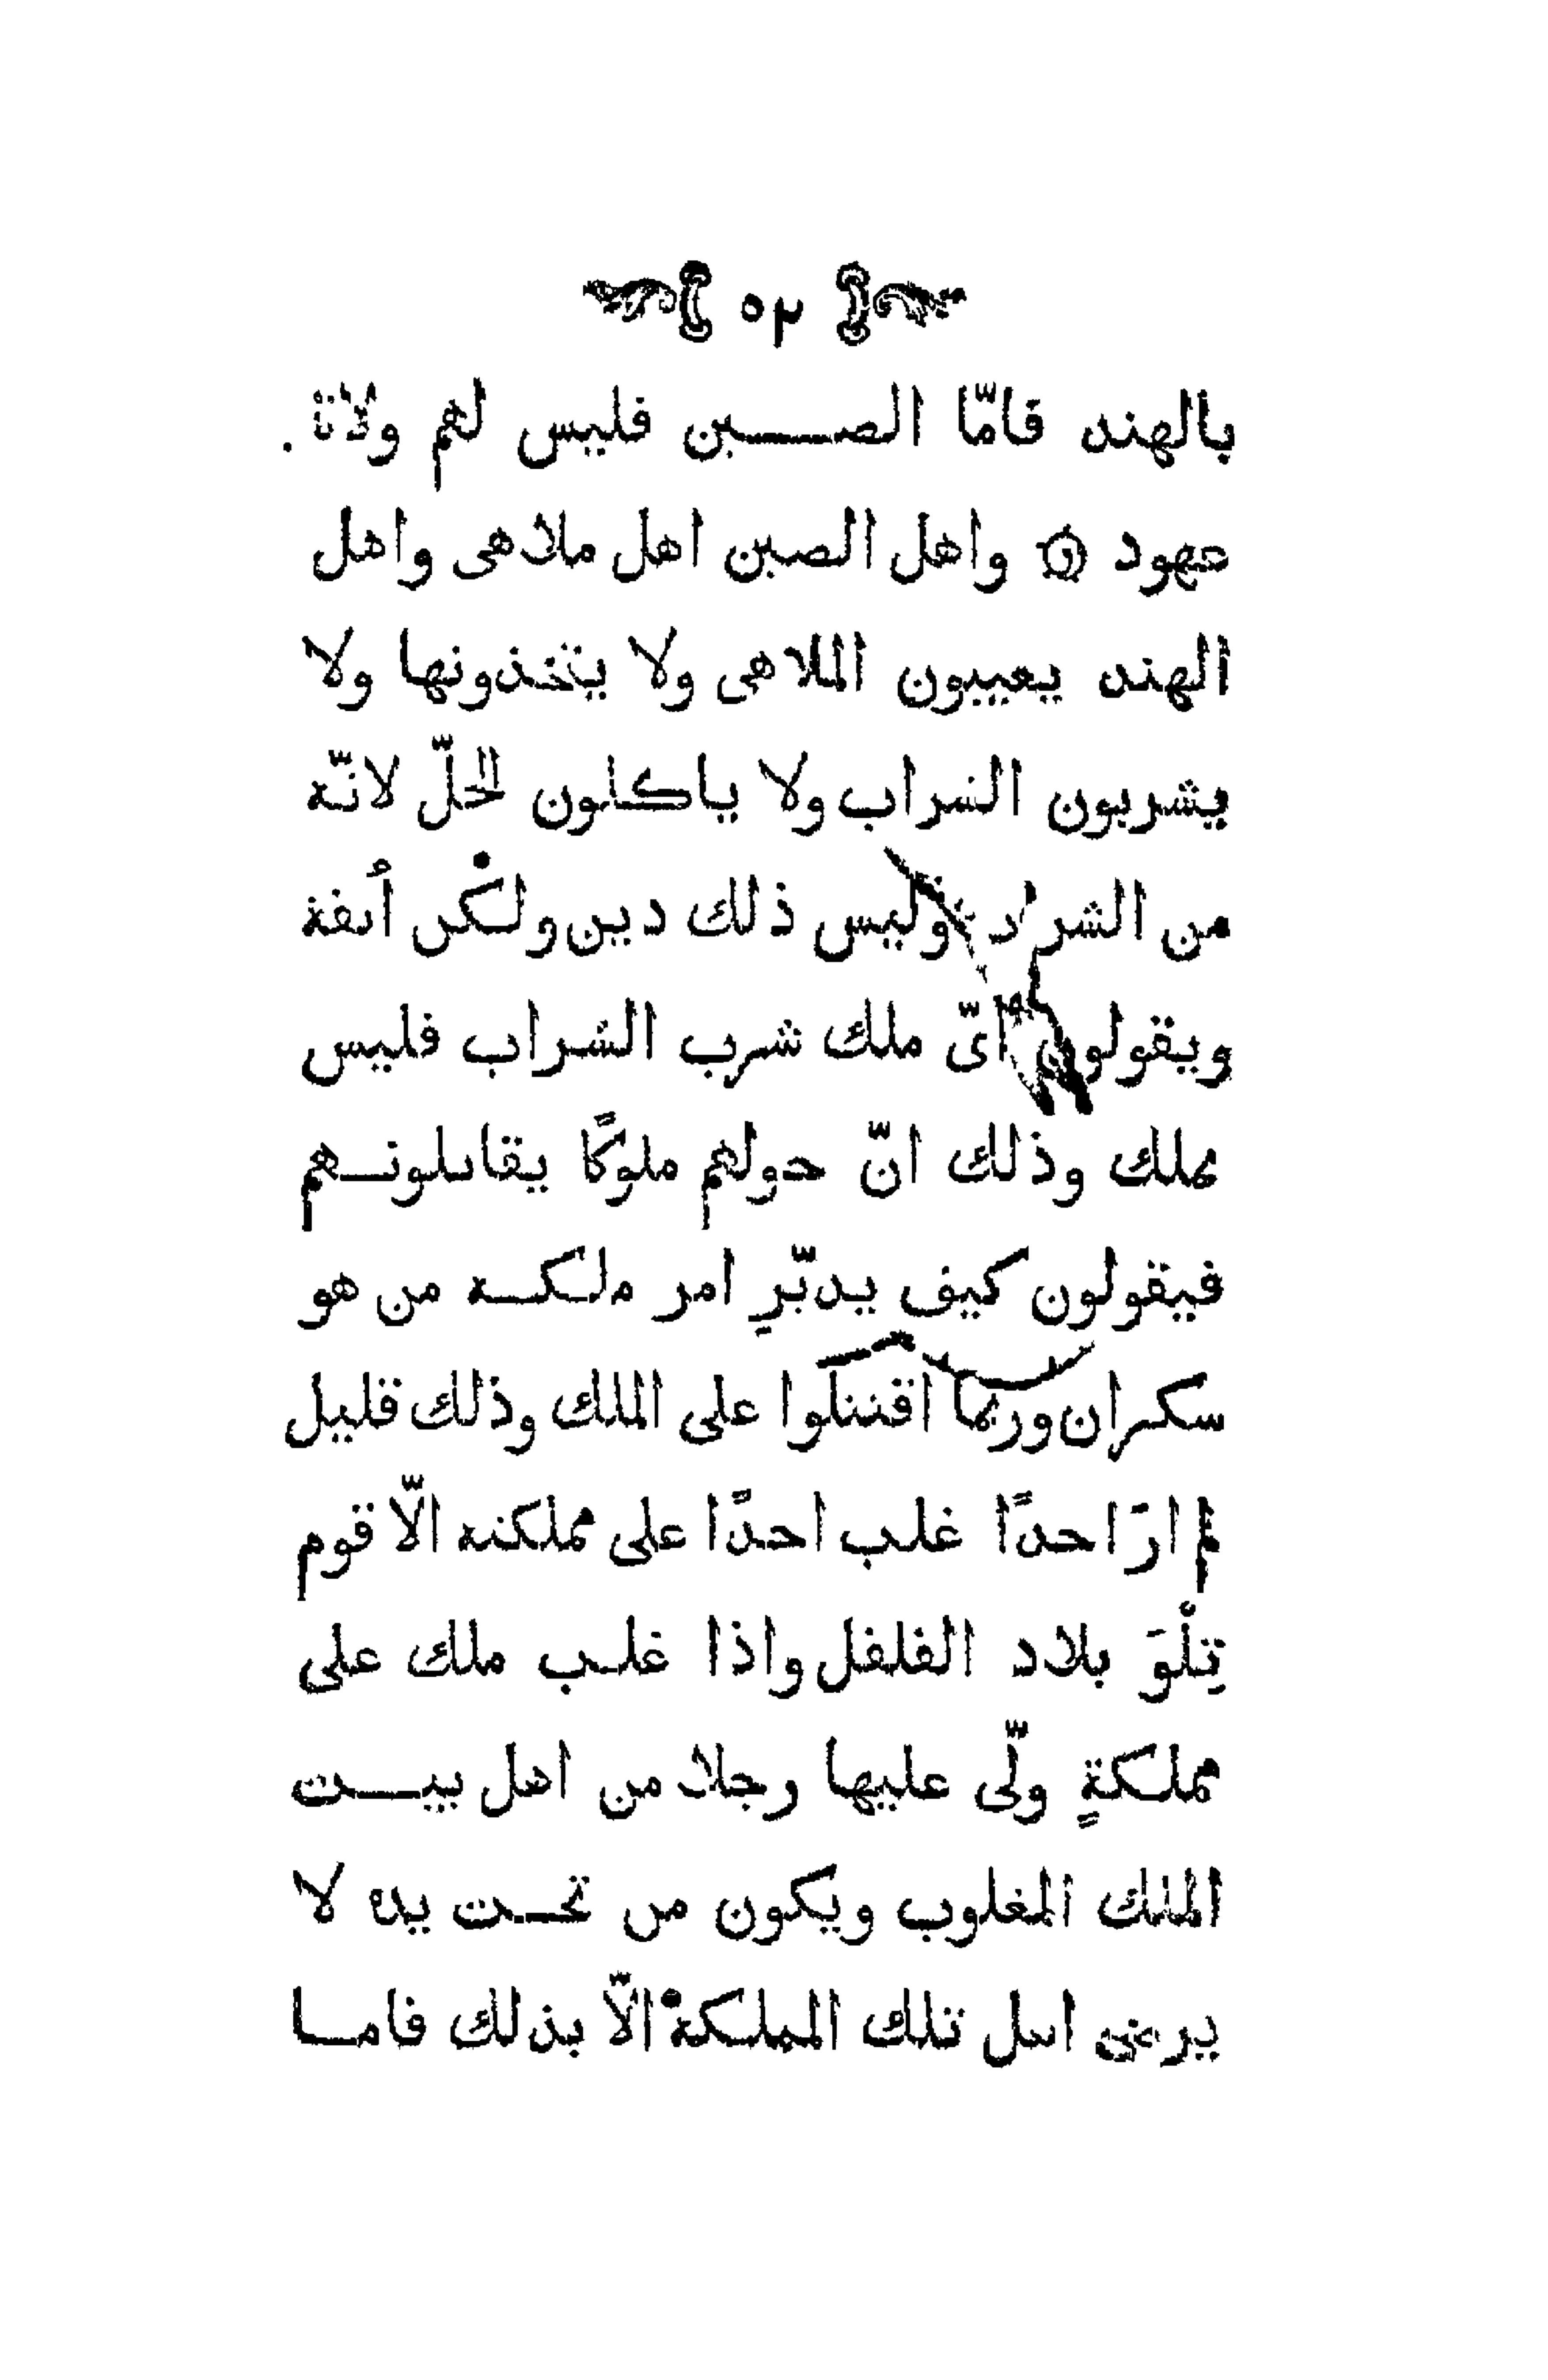 ٥٢
بالهند فامّا الصين فليس لهم ولاة
عهود واهل الصين اهل ملاهى واهل
الهند يعيبون الملاهى ولا يتخذونها ولا
يشربون الشراب ولا ياكلون الخلّ لانّه
من الشراب وليس ذلك دين ولكن أنفة
ويقولون اىّ ملك شرب الشراب فليس
بملك وذلك انّ حولهم ملوكًا يقاتلونهم
فيقولون كيف يدبّر امر ملكه من هو
سكران وربما اقتتلوا على الملك وذلك قليل
لم ارَ احدًا غلب احدًا على مملكته الّا قوم
تِلْوَ بلاد الفلفل واذا غلب ملك على
مملكةٍ ولّى عليها رجلا من اهل بيت
الملك المغلوب ويكون من تحت يده لا
يرضى اهل تلك المملكة الّا بذلك فاما